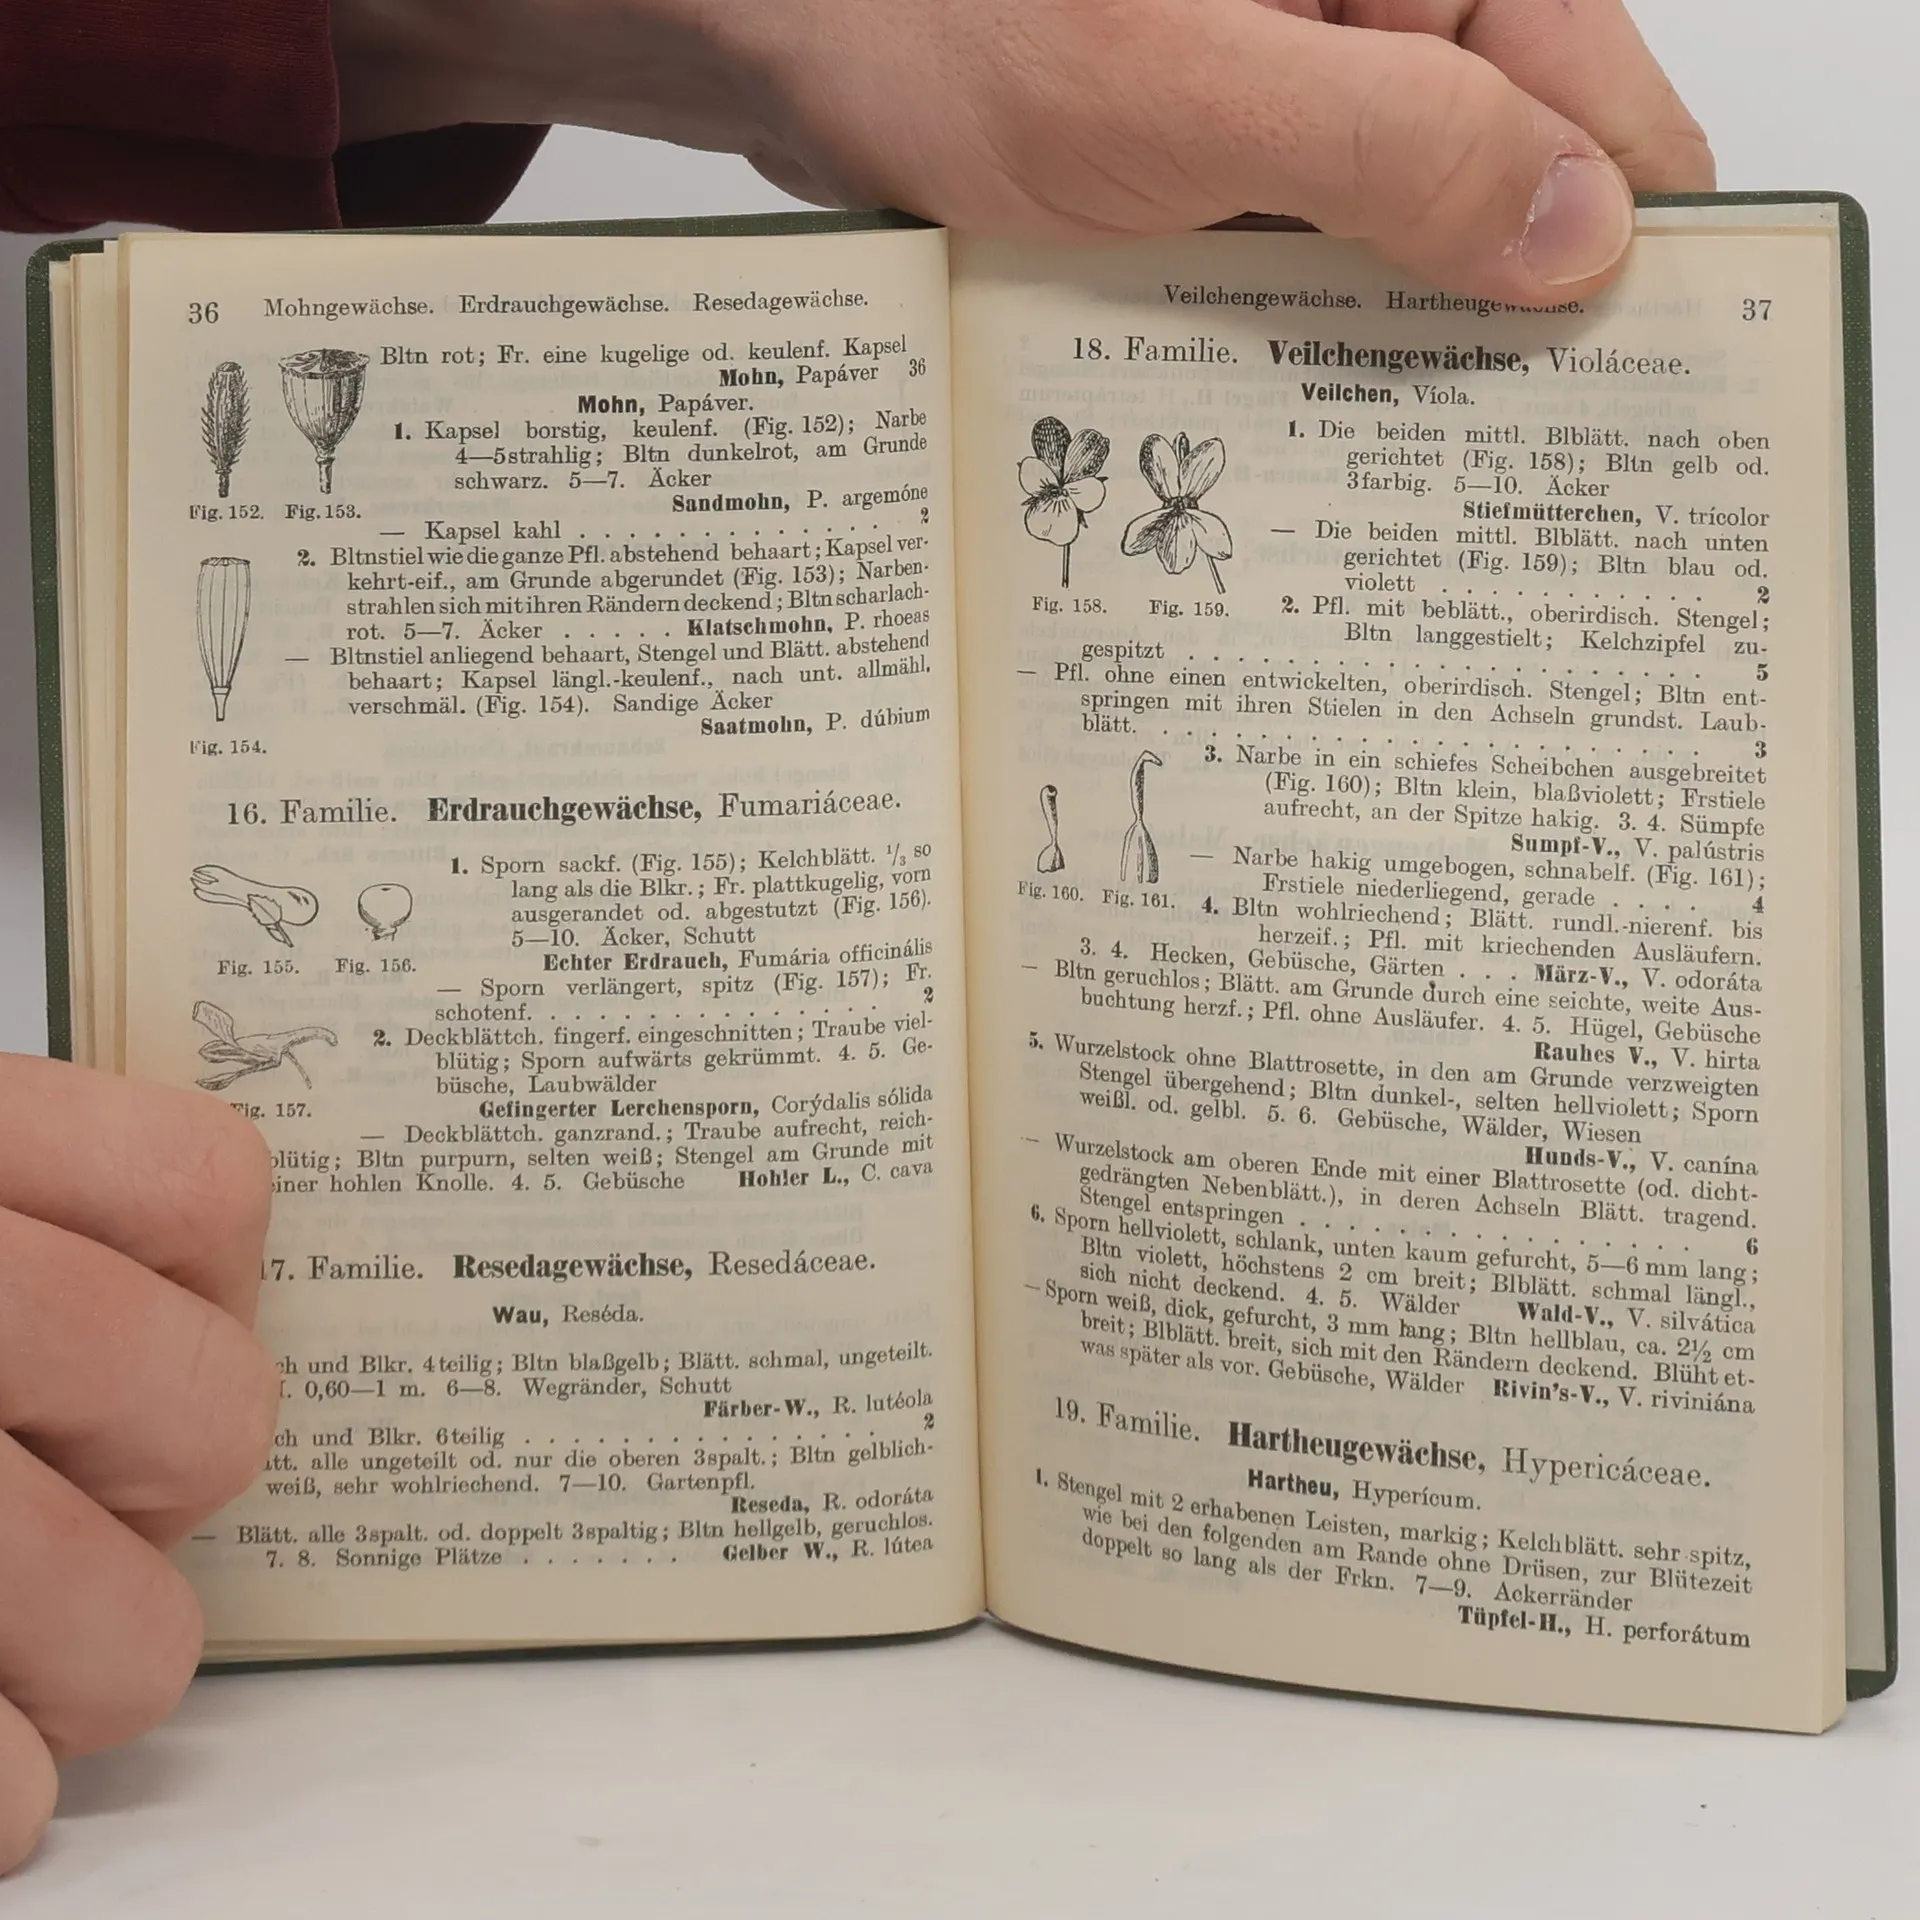 36 Mohngewächse. Erdrauchgewächse. Resedagewächse.
Bltn rot; Fr. eine kugelige od. keulenf. Kapsel
Mohn, Papáver 36
Mohn, Papáver.
1. Kapsel borstig, keulenf. (Fig. 152); Narbe
4—5strahlig; Bltn dunkelrot, am Grunde
schwarz. 5—7. Äcker
Sandmohn, P. argemóne
Fig. 152. Fig. 153.
— Kapsel kahl . . . . . . . . . . . . 2
2. Bltnstiel wie die ganze Pfl. abstehend behaart; Kapsel ver-
kehrt-eif., am Grunde abgerundet (Fig. 153); Narben-
strahlen sich mit ihren Rändern deckend; Bltn scharlach-
rot. 5—7. Äcker . . . . . Klatschmohn, P. rhoeas
— Bltnstiel anliegend behaart, Stengel und Blätt. abstehend
behaart; Kapsel längl.-keulenf., nach unt. allmähl.
verschmäl. (Fig. 154). Sandige Äcker
Saatmohn, P. dúbium
Fig. 154.
16. Familie. Erdrauchgewächse, Fumariáceae.
1. Sporn sackf. (Fig. 155); Kelchblätt. 1/3 so
lang als die Blkr.; Fr. plattkugelig, vorn
ausgerandet od. abgestutzt (Fig. 156).
5—10. Äcker, Schutt
Echter Erdrauch, Fumária officinális
Fig. 155. Fig. 156.
— Sporn verlängert, spitz (Fig. 157); Fr.
schotenf. . . . . . . . . . . . . . . 2
2. Deckblättch. fingerf. eingeschnitten; Traube viel-
blütig; Sporn aufwärts gekrümmt. 4. 5. Ge-
büsche, Laubwälder
Gefingerter Lerchensporn, Corýdalis sólida
Fig. 157.
— Deckblättch. ganzrand.; Traube aufrecht, reich-
blütig; Bltn purpurn, selten weiß; Stengel am Grunde mit
einer hohlen Knolle. 4. 5. Gebüsche Hohler L., C. cava
17. Familie. Resedagewächse, Resedáceae.
Wau, Reséda.
ch und Blkr. 4teilig; Bltn blaßgelb; Blätt. schmal, ungeteilt.
0,60—1 m. 6—8. Wegränder, Schutt
Färber-W., R. lutéola
ch und Blkr. 6teilig . . . . . . . . . . . . . 2
tt. alle ungeteilt od. nur die oberen 3spalt.; Bltn gelblich-
weiß, sehr wohlriechend. 7—10. Gartenpfl.
Reseda, R. odoráta
— Blätt. alle 3spalt. od. doppelt 3spaltig; Bltn hellgelb, geruchlos.
7. 8. Sonnige Plätze . . . . . . . Gelber W., R. lútea
Veilchengewächse. Hartheugewächse. 37
18. Familie. Veilchengewächse, Violáceae.
Veilchen, Víola.
1. Die beiden mittl. Blblätt. nach oben
gerichtet (Fig. 158); Bltn gelb od.
3farbig. 5—10. Äcker
Stiefmütterchen, V. trícolor
— Die beiden mittl. Blblätt. nach unten
gerichtet (Fig. 159); Bltn blau od.
violett . . . . . . . . . . . 2
Fig. 158. Fig. 159.
2. Pfl. mit beblätt., oberirdisch. Stengel;
Bltn langgestielt; Kelchzipfel zu-
gespitzt . . . . . . . . . . . . . . . . . . 5
— Pfl. ohne einen entwickelten, oberirdisch. Stengel; Bltn ent-
springen mit ihren Stielen in den Achseln grundst. Laub-
blätt. . . . . . . . . . . . . . . . . . . . 3
3. Narbe in ein schiefes Scheibchen ausgebreitet
(Fig. 160); Bltn klein, blaßviolett; Frstiele
aufrecht, an der Spitze hakig. 3. 4. Sümpfe
Sumpf-V., V. palústris
— Narbe hakig umgebogen, schnabelf. (Fig. 161);
Frstiele niederliegend, gerade . . . . 4
Fig. 160. Fig. 161.
4. Bltn wohlriechend; Blätt. rundl.-nierenf. bis
herzeif.; Pfl. mit kriechenden Ausläufern.
3. 4. Hecken, Gebüsche, Gärten . . . März-V., V. odoráta
— Bltn geruchlos; Blätt. am Grunde durch eine seichte, weite Aus-
buchtung herzf.; Pfl. ohne Ausläufer. 4. 5. Hügel, Gebüsche
Rauhes V., V. hirta
5. Wurzelstock ohne Blattrosette, in den am Grunde verzweigten
Stengel übergehend; Bltn dunkel-, selten hellviolett; Sporn
weißl. od. gelbl. 5. 6. Gebüsche, Wälder, Wiesen
Hunds-V., V. canína
— Wurzelstock am oberen Ende mit einer Blattrosette (od. dicht-
gedrängten Nebenblätt.), in deren Achseln Blätt. tragend.
Stengel entspringen . . . . . . . . . . . . . 6
6. Sporn hellviolett, schlank, unten kaum gefurcht, 5—6 mm lang;
Bltn violett, höchstens 2 cm breit; Blblätt. schmal längl.,
sich nicht deckend. 4. 5. Wälder Wald-V., V. silvática
— Sporn weiß, dick, gefurcht, 3 mm lang; Bltn hellblau, ca. 2½ cm
breit; Blblätt. breit, sich mit den Rändern deckend. Blüht et-
was später als vor. Gebüsche, Wälder Rivin's-V., V. riviniána
19. Familie. Hartheugewächse, Hypericáceae.
Hartheu, Hyperícum.
1. Stengel mit 2 erhabenen Leisten, markig; Kelchblätt. sehr spitz,
wie bei den folgenden am Rande ohne Drüsen, zur Blütezeit
doppelt so lang als der Frkn. 7—9. Ackerränder
Tüpfel-H., H. perforátum